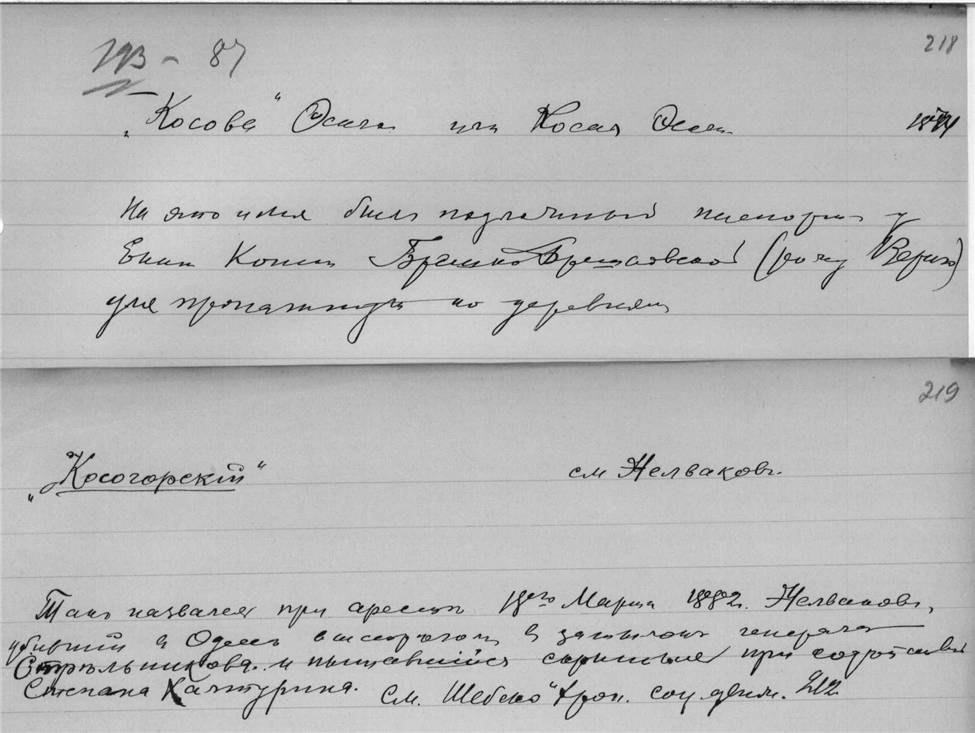 218
193 - 87
„Косова“ Осипа или Косая Осип 1874
На это имя былъ подложный паспортъ у
Екат Конст Брешко Брешковской (рожд Вериго)
для пропаганды по деревнямъ
219
„Косогорскій“ см Желваковъ.
Такъ назвался при арестѣ 18го Марта 1882г. Желваковъ,
убившій въ Одессѣ выстрѣломъ въ затылокъ генерала
Стрѣльникова и пытавшійся скрыться при содѣйствіи
Степана Халтурина. см. Шебеко "Хрон. соц. движ. 212